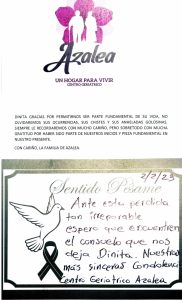 Azalea
UN HOGAR PARA VIVIR
CENTRO GERIÁTRICO
DINITA GRACIAS POR PERMITIRNOS SER PARTE FUNDAMENTAL DE SU VIDA, NO
OLVIDAREMOS SUS OCURRENCIAS, SUS CHISTES Y SUS ANHELADAS GOLOSINAS,
SIEMPRE LE RECORDAREMOS CON MUCHO CARIÑO, PERO SOBRETODO CON MUCHA
GRATITUD POR HABER SIDO PARTE DE NUESTROS INICIOS Y PIEZA FUNDAMENTAL EN
NUESTRO PRESENTE.
CON CARIÑO, LA FAMILIA DE AZALEA.
2/2/23
Sentido Pésame
Ante esta perdida
tan irreparable
espero que encuentren
el consuelo que nos
deja Dinita. Nuestras
más sinceras Condolencias
Centro Geriatrico Azalea